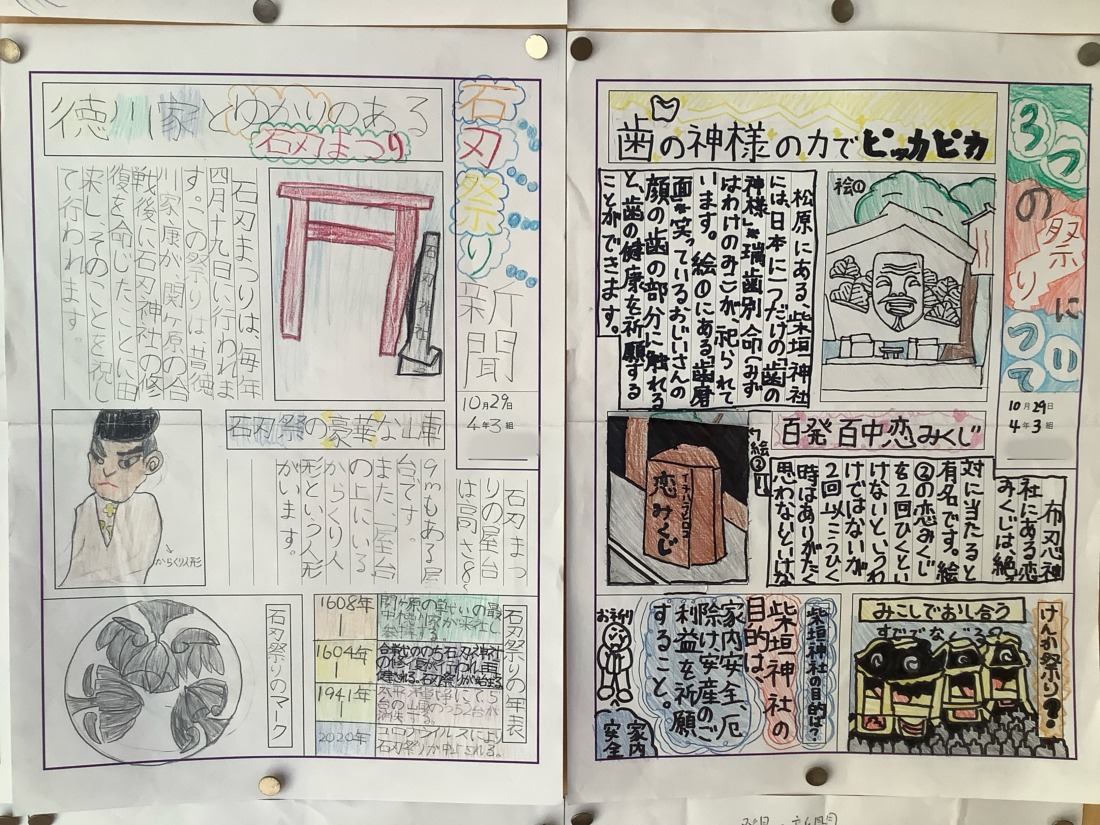 石刃祭り新聞
10月29日
4年3組
徳川家とゆかりのある
石刃まつり
石刃まつりは、毎年
四月十九日に行われま
す。この祭りは、昔徳
川家康が、関ヶ原の合
戦後に石刃神社の修
復を命じたことに由
来し、そのことを祝し
て行われます。
石刃神社
石刃祭の豪華な山車
石刃まつ
りの屋台
は、高さ8〜
9mもある屋
台です。
また、屋台
の上にいる
からくり人
形という人形
がいます。
からくり人形
石刃祭りの年表
1608年
関ヶ原の戦いの最
1604年
1941年
2020年
コロナウイルスにより
石刃祭りが中止される。
石刃祭りのマーク
3つの祭りについて
10月29日
4年3組
歯の神様の力でピッカピカ
絵①
松原にある、柴垣神社
には日本に一つだけの歯の
神様、瑞歯別命(みず
はわけのみこ)が、祀られて
います。絵①にある歯磨
面、笑っているおじいさんの
顔の歯の部分に触れる
と、歯の健康を祈願する
ことができます。
百発百中恋みくじ
絵②
恋みくじ
布忍神
社にある恋
みくじは、絶
対に当たると
有名です。絵
②の恋みくじ
を2回ひくとい
けないというわ
けではないが
2回以上ひく
時はありがたく
思わないといけな
い
けんか祭り?
みこしでおし合う
すごでなぐる?
柴垣神社の目的は?
柴垣神社の
目的は、
家内安全、厄
除け安産のご
利益を祈願
すること。
お祈り
家内
安全